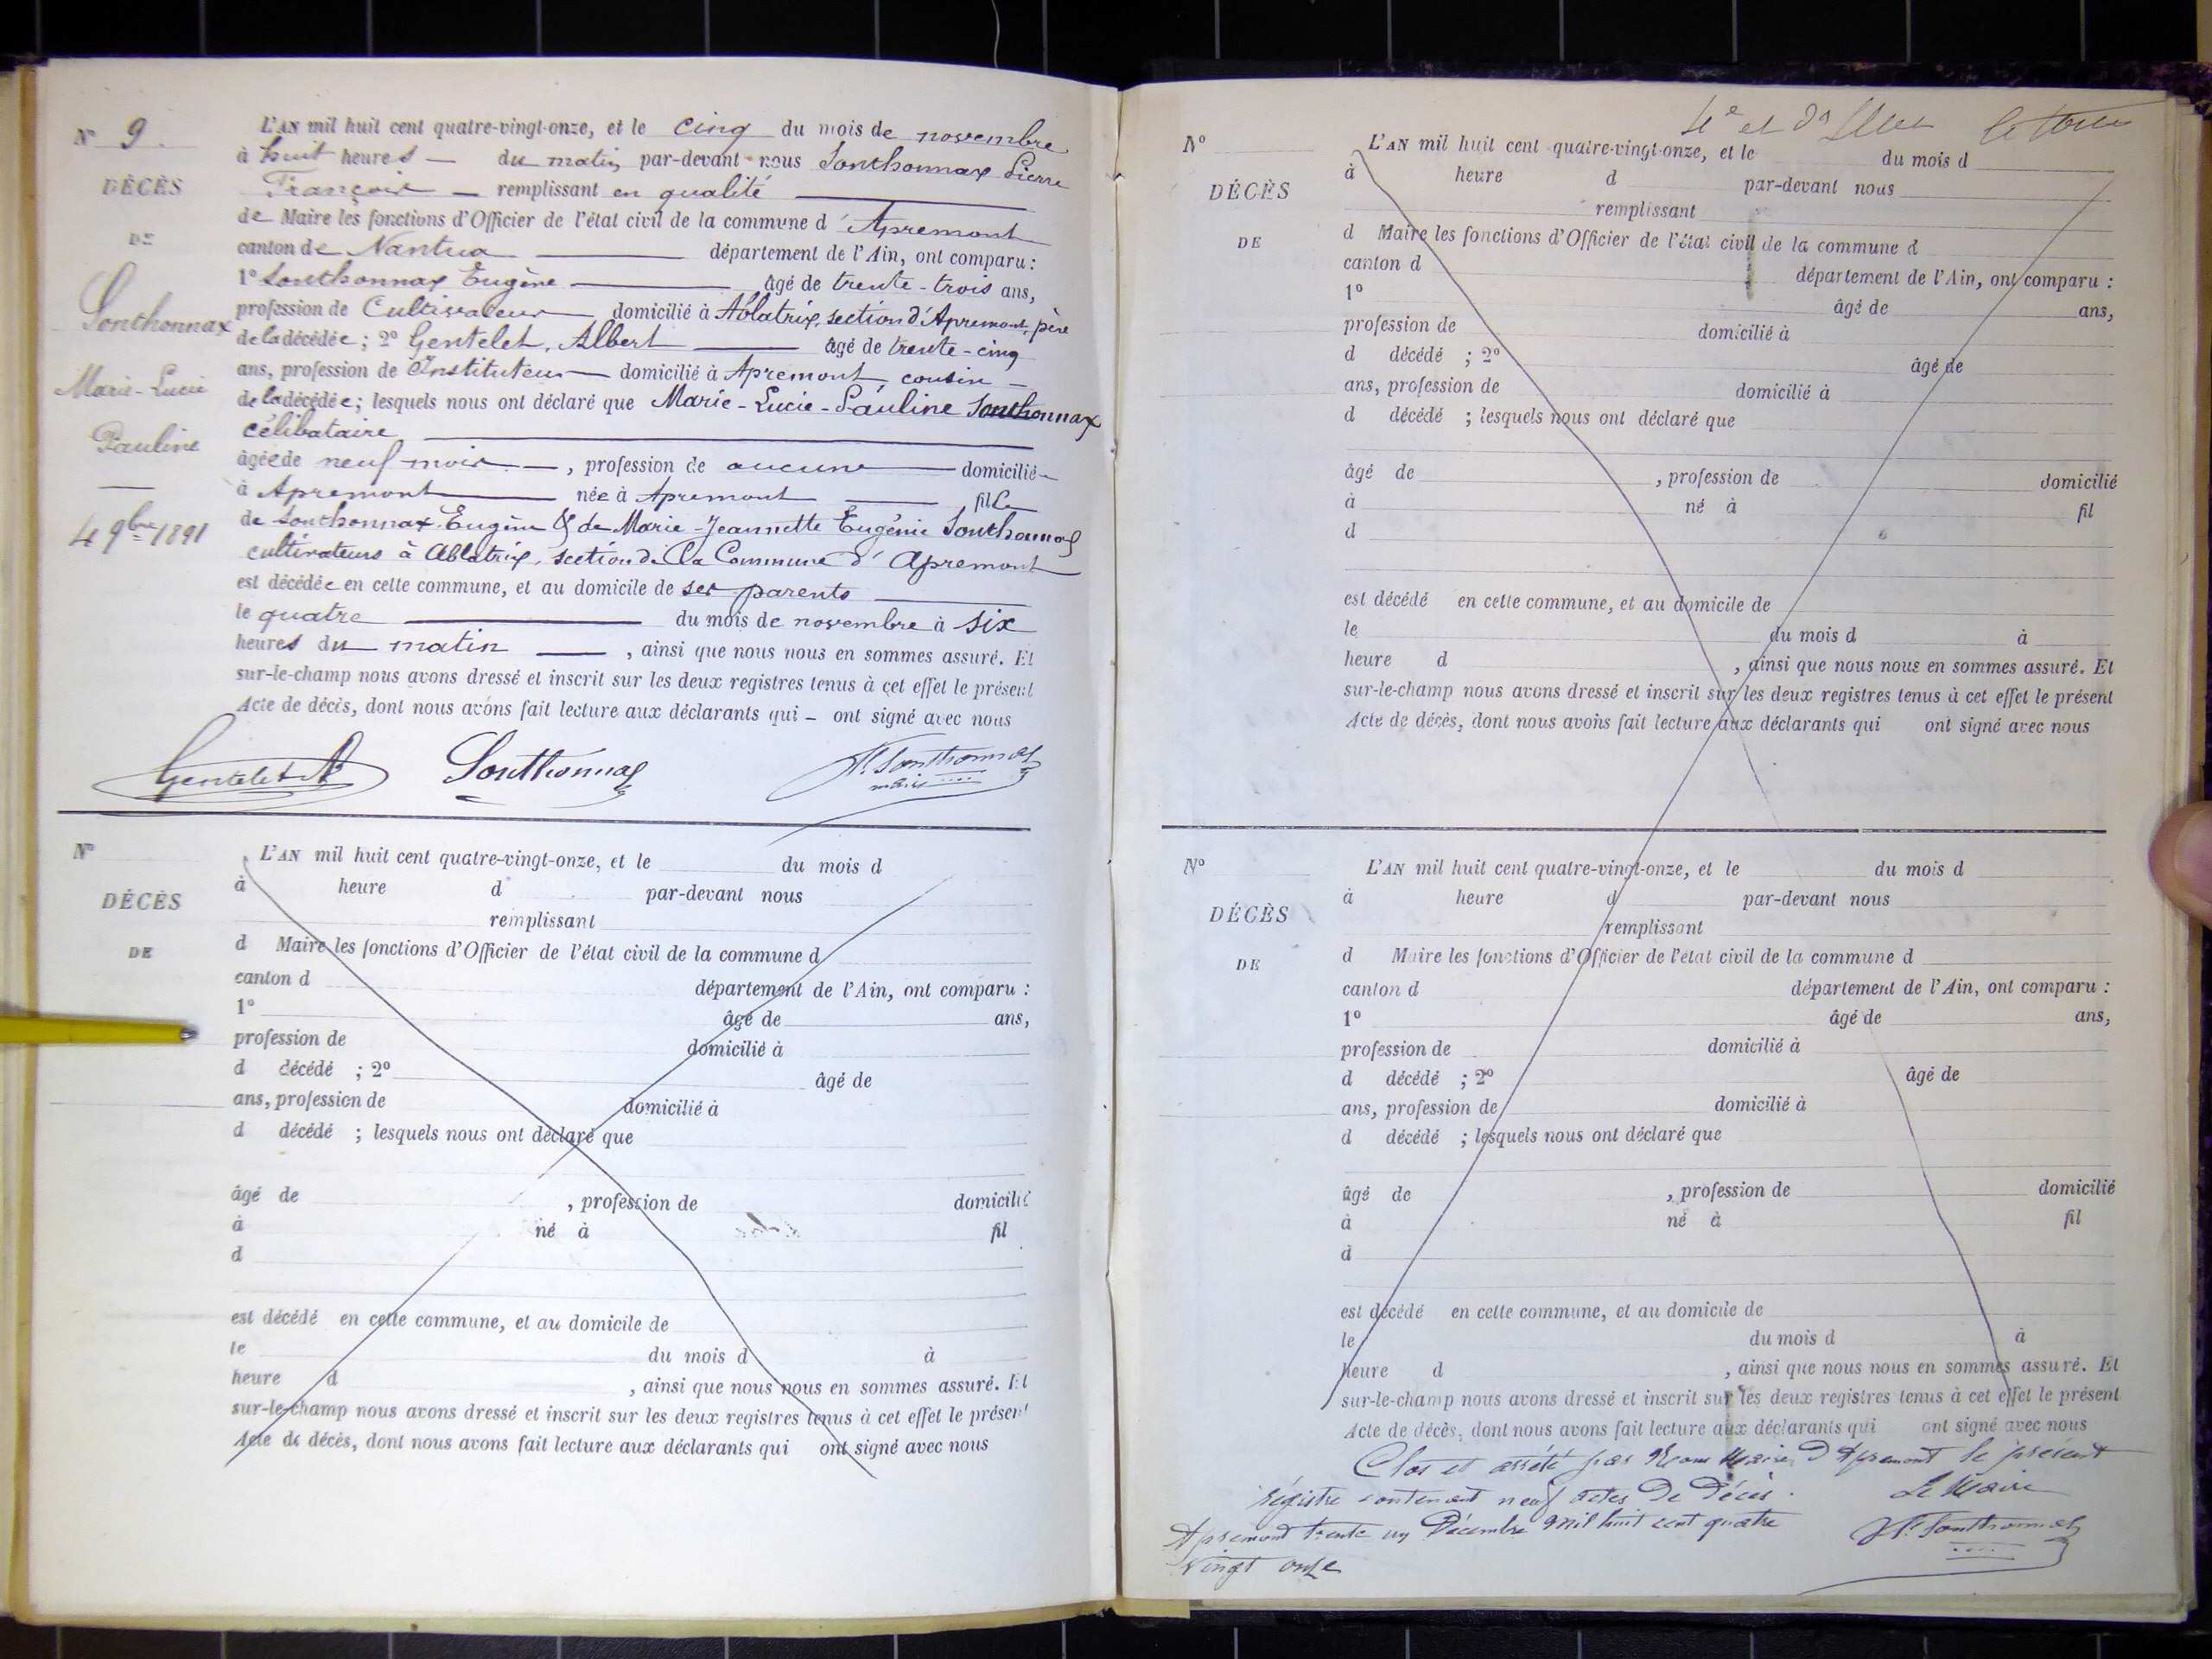 N° 9.
DÉCÈS
DE
Sonthonnax
Marie-Lucie
Pauline
4 9bre 1891
L'AN mil huit cent quatre-vingt-onze, et le cinq du mois de novembre
à huit heures — du matin par-devant nous Sonthonnax Pierre
François — remplissant en qualité
de Maire les fonctions d'Officier de l'état civil de la commune d'Apremont
canton de Nantua département de l'Ain, ont comparu :
1° Sonthonnax Eugène âgé de trente-trois ans,
profession de Cultivateur domicilié à Ablatrix, section d'Apremont, père
de la décédée ; 2° Gentelet, Albert âgé de trente-cinq
ans, profession de Instituteur domicilié à Apremont, cousin —
de la décédée ; lesquels nous ont déclaré que Marie-Lucie-Pauline Sonthonnax
célibataire
âgée de neuf mois —, profession de aucune domiciliée
à Apremont née à Apremont fille
de Sonthonnax Eugène & de Marie-Jeannette Eugénie Sonthonnax
cultivateurs à Ablatrix, section de la Commune d'Apremont
est décédée en cette commune, et au domicile de ses parents
le quatre du mois de novembre à six
heures du matin —, ainsi que nous nous en sommes assuré. Et
sur-le-champ nous avons dressé et inscrit sur les deux registres tenus à cet effet le présent
Acte de décès, dont nous avons fait lecture aux déclarants qui — ont signé avec nous
Gentelet A Sonthonnax Sonthonnax
maire
N°
DÉCÈS
DE
L'AN mil huit cent quatre-vingt-onze, et le du mois d
à heure d par-devant nous
remplissant
d Maire les fonctions d'Officier de l'état civil de la commune d
canton d département de l'Ain, ont comparu :
1° âgé de ans,
profession de domicilié à
d décédé ; 2° âgé de
ans, profession de domicilié à
d décédé ; lesquels nous ont déclaré que
âgé de , profession de domicilié
à né à fil
d
est décédé en cette commune, et au domicile de
le du mois d à
heure d , ainsi que nous nous en sommes assuré. Et
sur-le-champ nous avons dressé et inscrit sur les deux registres tenus à cet effet le présent
Acte de décès, dont nous avons fait lecture aux déclarants qui ont signé avec nous
4e et
N°
DÉCÈS
DE
L'AN mil huit cent quatre-vingt-onze, et le du mois d
à heure d par-devant nous
remplissant
d Maire les fonctions d'Officier de l'état civil de la commune d
canton d département de l'Ain, ont comparu :
1° âgé de ans,
profession de domicilié à
d décédé ; 2° âgé de
ans, profession de domicilié à
d décédé ; lesquels nous ont déclaré que
âgé de , profession de domicilié
à né à fil
d
est décédé en cette commune, et au domicile de
le du mois d à
heure d , ainsi que nous nous en sommes assuré. Et
sur-le-champ nous avons dressé et inscrit sur les deux registres tenus à cet effet le présent
Acte de décès, dont nous avons fait lecture aux déclarants qui ont signé avec nous
N°
DÉCÈS
DE
L'AN mil huit cent quatre-vingt-onze, et le du mois d
à heure d par-devant nous
remplissant
d Maire les fonctions d'Officier de l'état civil de la commune d
canton d département de l'Ain, ont comparu :
1° âgé de ans,
profession de domicilié à
d décédé ; 2° âgé de
ans, profession de domicilié à
d décédé ; lesquels nous ont déclaré que
âgé de , profession de domicilié
à né à fil
d
est décédé en cette commune, et au domicile de
le du mois d à
heure d , ainsi que nous nous en sommes assuré. Et
sur-le-champ nous avons dressé et inscrit sur les deux registres tenus à cet effet le présent
Acte de décès, dont nous avons fait lecture aux déclarants qui ont signé avec nous
Clos et arrété par Nous Maire d'Apremont le présent
régistre contenant neuf actes de décès.
Apremont trente un Décembre mil huit cent quatre
vingt onze
Le Maire
Sonthonnax